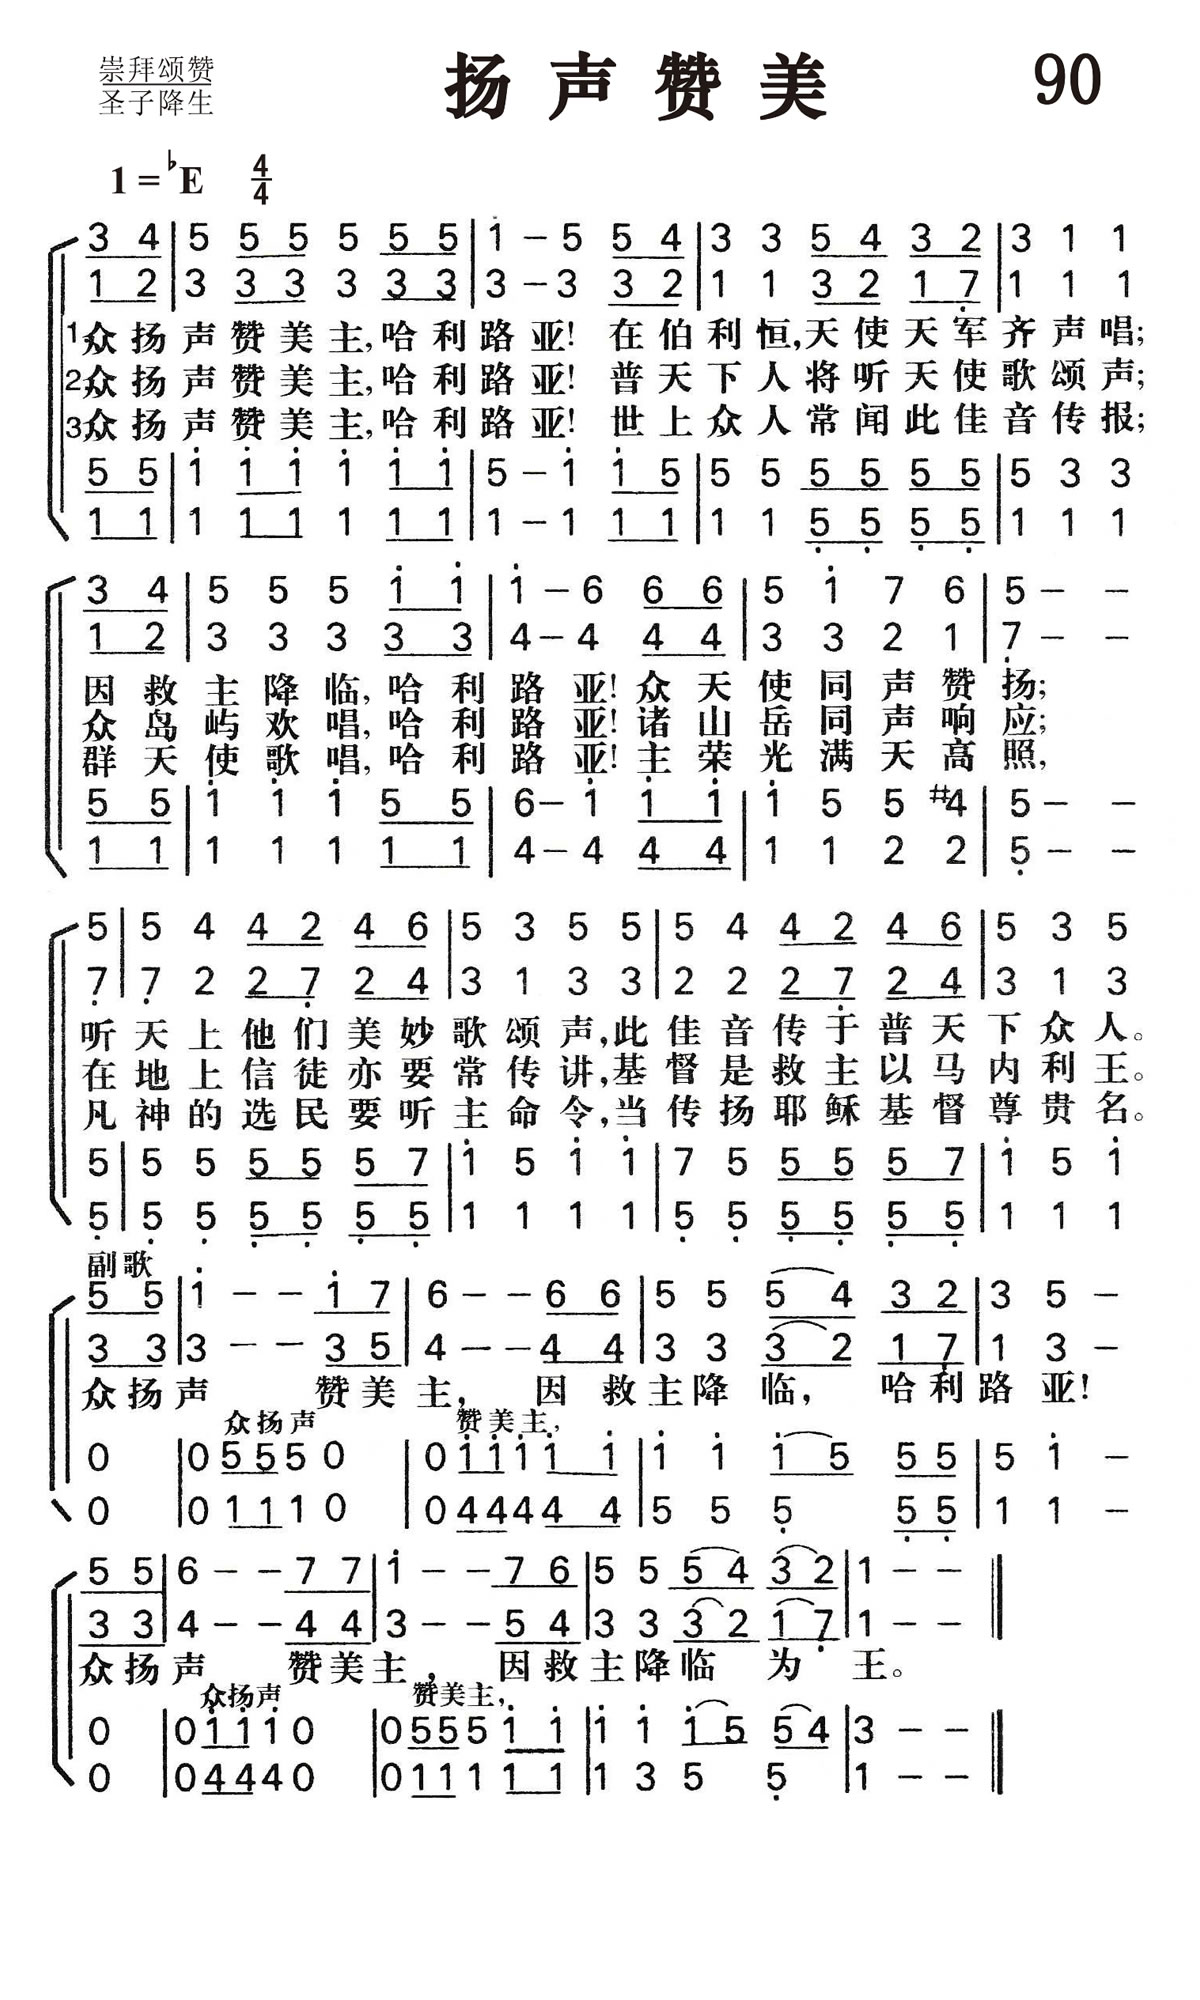 崇拜颂赞
圣子降生
扬声赞美
90
1=♭E 4/4
3 4|5 5 5 5 5 5|1 – 5 5 4|3 3 5 4 3 2|3 1 1
1 2|3 3 3 3 3 3|3 – 3 3 2|1 1 3 2 1 7|1 1 1
1众扬声赞美主,哈利路亚!在伯利恒,天使天军齐声唱;
2众扬声赞美主,哈利路亚!普天下人将听天使歌颂声;
3众扬声赞美主,哈利路亚!世上众人常闻此佳音传报;
5 5|1 1 1 1 1 1|5 – 1 1 5|5 5 5 5 5 5|5 3 3
1 1|1 1 1 1 1 1|1 – 1 1 1|1 1 5 5 5 5|1 1 1
3 4|5 5 5 1 1|1 – 6 6 6|5 1 7 6|5 – –
1 2|3 3 3 3 3|4 – 4 4 4|3 3 2 1|7 – –
因救主降临,哈利路亚!众天使同声赞扬;
众岛屿欢唱,哈利路亚!诸山岳同声响应;
群天使歌唱,哈利路亚!主荣光满天高照,
5 5|1 1 1 5 5|6 – 1 1 1|1 5 5 #4|5 – –
1 1|1 1 1 1 1|4 – 4 4 4|1 1 2 2|5 – –
5|5 4 4 2 4 6|5 3 5 5|5 4 4 2 4 6|5 3 5
7|7 2 2 7 2 4|3 1 3 3|2 2 2 7 2 4|3 1 3
听天上他们美妙歌颂声,此佳音传于普天下众人。
在地上信徒亦要常传讲,基督是救主以马内利王。
凡神的选民要听主命令,当传扬耶稣基督尊贵名。
5|5 5 5 5 5 7|1 5 1 1|7 5 5 5 5 7|1 5 1
5|5 5 5 5 5 5|1 1 1 1|5 5 5 5 5 5|1 1 1
副歌
5 5|1 – – 1 7|6 – – 6 6|5 5 5 4 3 2|3 5 –
3 3|3 – – 3 5|4 – – 4 4|3 3 3 2 1 7|1 3 –
众扬声 赞美主, 因救主降临, 哈利路亚!
众扬声 赞美主,
0 |0 5 5 5 0 |0 1 1 1 1 1|1 1 1 5 5 5|5 1 –
0 |0 1 1 1 0 |0 4 4 4 4 4|5 5 5 5 5|1 1 –
5 5|6 – – 7 7|1 – – 7 6|5 5 5 4 3 2|1 – –
3 3|4 – – 4 4|3 – – 5 4|3 3 3 2 1 7|1 – –
众扬声 赞美主, 因救主降临 为 王。
众扬声 赞美主,
0 |0 1 1 1 0 |0 5 5 5 1 1|1 1 1 5 5 4|3 – –
0 |0 4 4 4 0 |0 1 1 1 1 1|1 3 5 5|1 – –